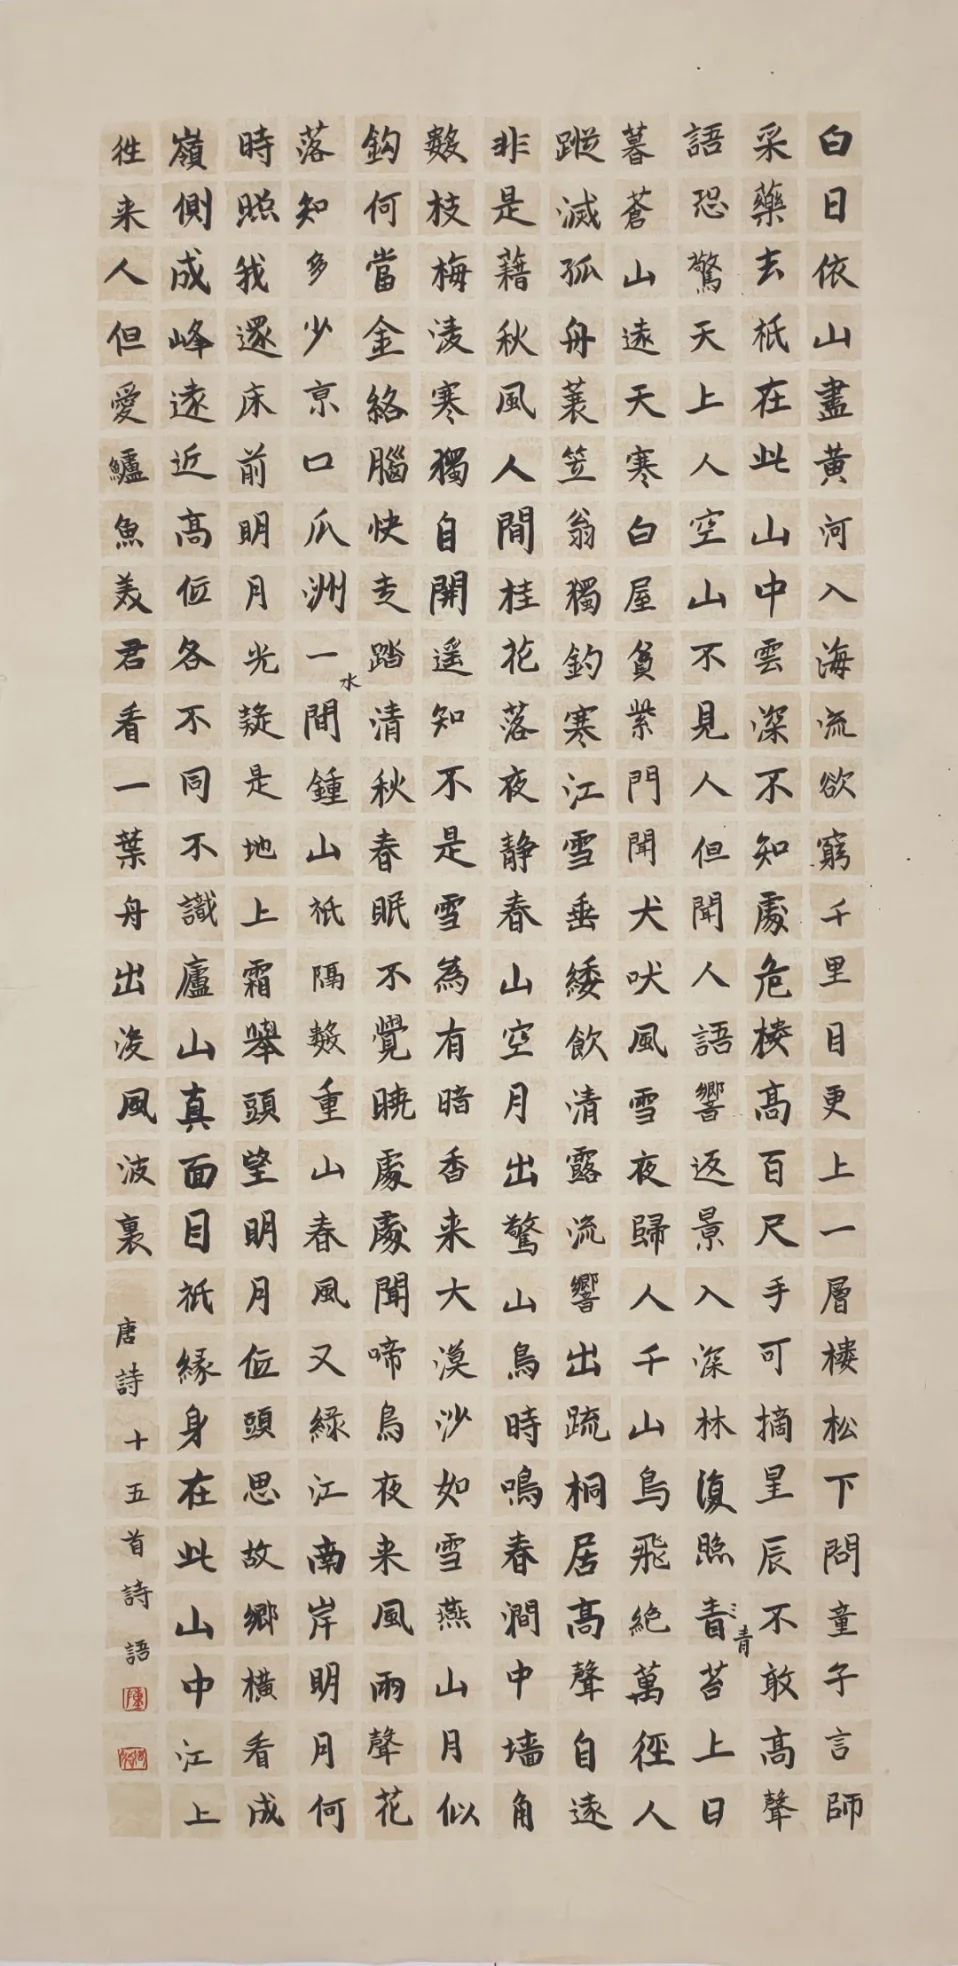 白日依山盡黃河入海流欲窮千里目更上一層樓松下問童子言師
采藥去祇在此山中雲深不知處危樓高百尺手可摘星辰不敢高聲
語恐驚天上人空山不見人但聞人語響返景入深林復照青苔上日
暮蒼山遠天寒白屋貧紫門聞犬吠風雪夜歸人千山鳥飛絕萬徑人
蹤滅孤舟蓑笠翁獨釣寒江雪垂緌飲清露流響出疏桐居高聲自遠
非是藉秋風人間桂花落夜靜春山空月出驚山鳥時鳴春澗中墻角
數枝梅凌寒獨自開遙知不是雪為有暗香来大漠沙如雪燕山月似
鈎何當金絡腦快走踏清秋春眠不覺曉處處聞啼鳥夜来風雨聲花
落知多少京口瓜洲一水間鍾山祇隔數重山春風又綠江南岸明月何
時照我還床前明月光疑是地上霜舉頭望明月低頭思故鄉橫看成
嶺側成峰遠近高低各不同不識廬山真面目祇緣身在此山中江上
往来人但愛鱸魚美君看一葉舟出没風波裏
唐詩十五首詩語